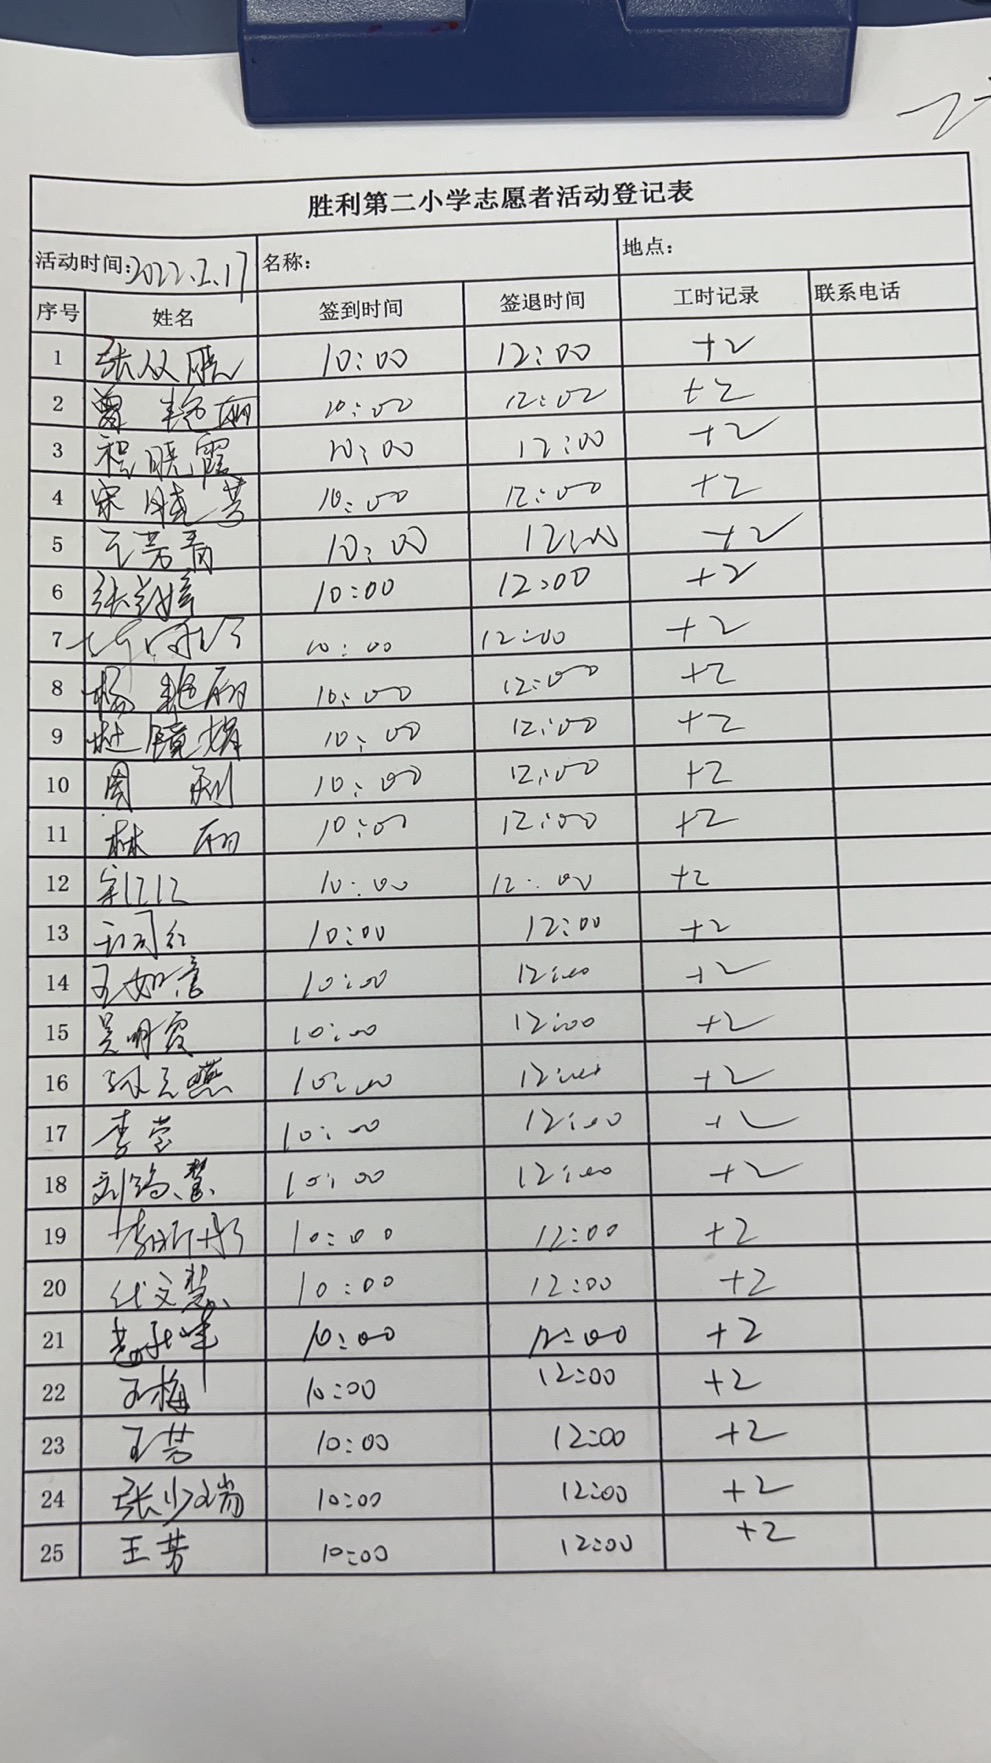 胜利第二小学志愿者活动登记表
活动时间:2022.2.17 名称: 地点:
序号 姓名 签到时间 签退时间 工时记录 联系电话
1 10:00 12:00 +2
2 曾艳丽 10:00 12:00 +2
3 程晓霞 10:00 12:00 +2
4 宋晓芳 10:00 12:00 +2
5 王芳青 10:00 12:00 +2
6 10:00 12:00 +2
7 10:00 12:00 +2
8 杨艳丽 10:00 12:00 +2
9 杜镜娟 10:00 12:00 +2
10 周利 10:00 12:00 +2
11 林丽 10:00 12:00 +2
12 10:00 12:00 +2
13 10:00 12:00 +2
14 王如意 10:00 12:00 +2
15 吴明霞 10:00 12:00 +2
16 10:00 12:00 +2
17 李莹 10:00 12:00 +2
18 10:00 12:00 +2
19 10:00 12:00 +2
20 代文慧 10:00 12:00 +2
21 10:00 12:00 +2
22 王梅 10:00 12:00 +2
23 王芳 10:00 12:00 +2
24 张少瑞 10:00 12:00 +2
25 王芳 10:00 12:00 +2